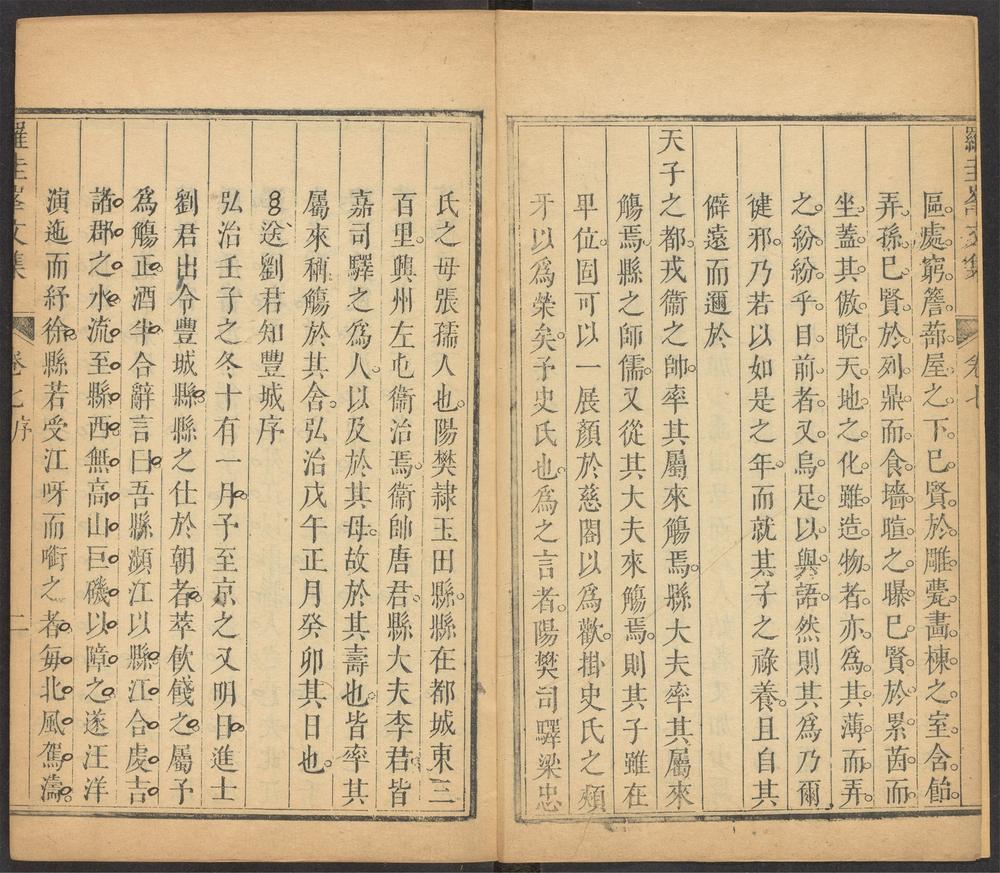 羅圭峯文集 卷七
區處窮簷蔀屋之下巳賢於雕甍畵棟之室含飴
弄孫巳賢於列鼎而食墻暄之曝巳賢於累茵而
坐蓋其傲睨天地之化雖造物者亦爲其薄而弄
之紛紛乎目前者又烏足以與語然則其爲乃爾
健邪乃若以如是之年而就其子之祿養且自其
僻遠而邇於
天子之都戎衞之帥率其屬來觴焉縣大夫率其屬來
觴焉縣之師儒又從其大夫來觴焉則其子雖在
𤰞位固可以一展顏於慈闈以爲歡掛史氏之頰
牙以爲榮矣予史氏也爲之言者陽樊司驛梁忠
氏之母張孺人也陽樊隷玉田縣縣在都城東三
百里興州左屯衞治焉衞帥唐君縣大夫李君皆
嘉司驛之爲人以及於其母故於其壽也皆率其
屬來稱觴於其舍弘治戊午正月癸卯其日也
送劉君知豐城序
弘治壬子之冬十有一月予至京之又明日進士
劉君出令豐城縣縣之仕於朝者萃飮餞之屬予
爲觴正酒半合辭言曰吾縣瀕江以縣江合處吉
諸郡之水流至縣西無高山巨磯以障之遂汪洋
演迤而紓徐縣若受江呀而嚙之者每北風駕濤
羅圭峯文集 卷七序 二